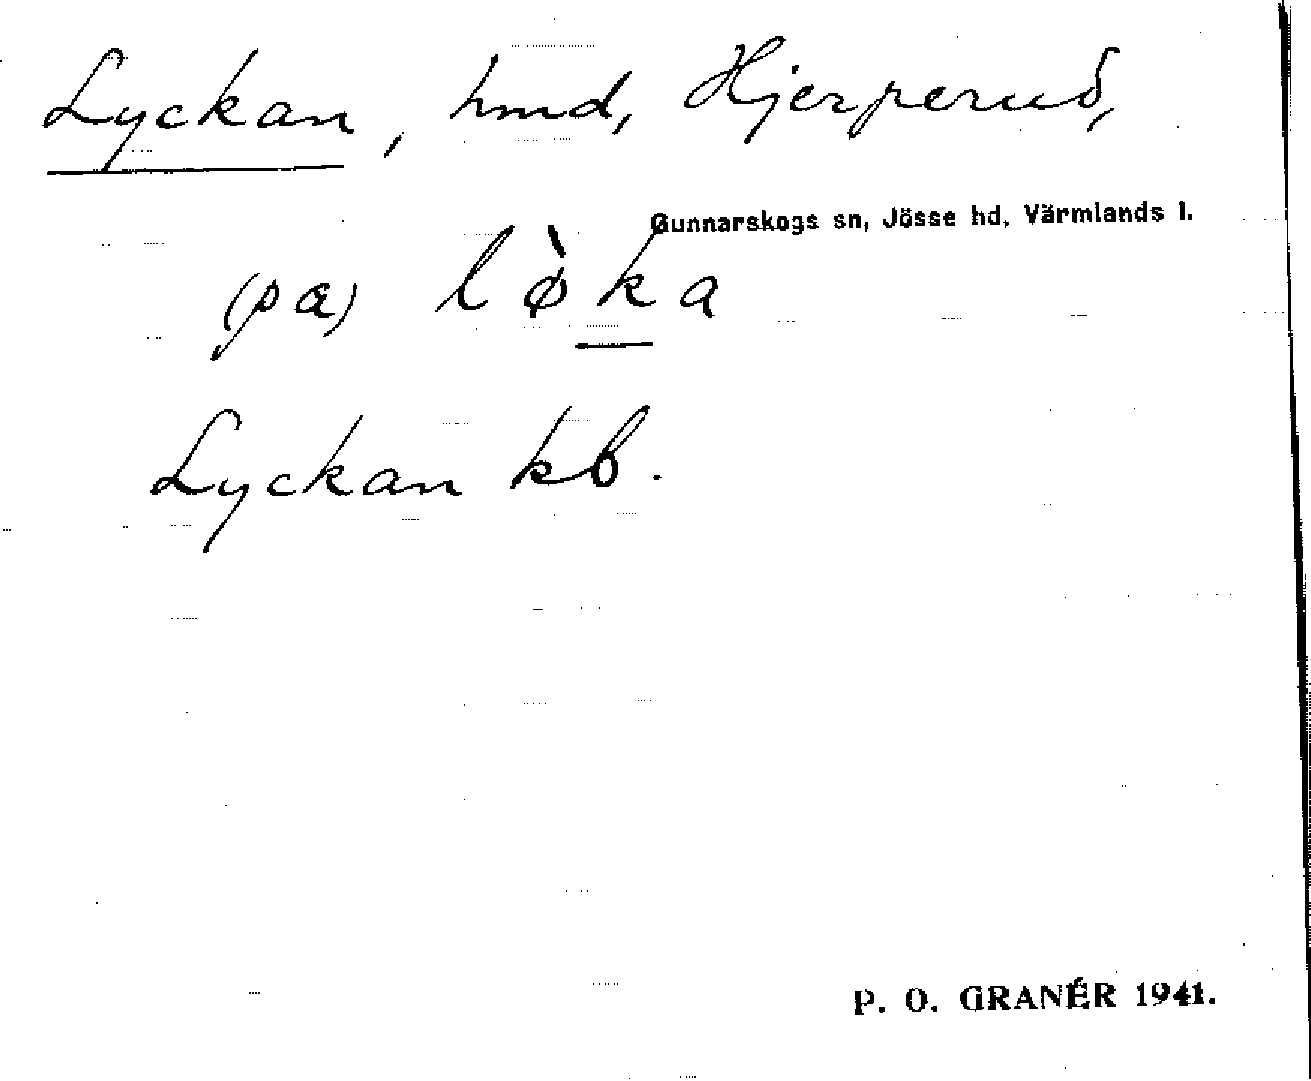 Lyckan, hmd, Hjerperud,
Gunnarskogs sn, Jösse hd, Värmlands l.
(pa) lø̀ka
Lyckan kb.
P. O. GRANÉR 1941.